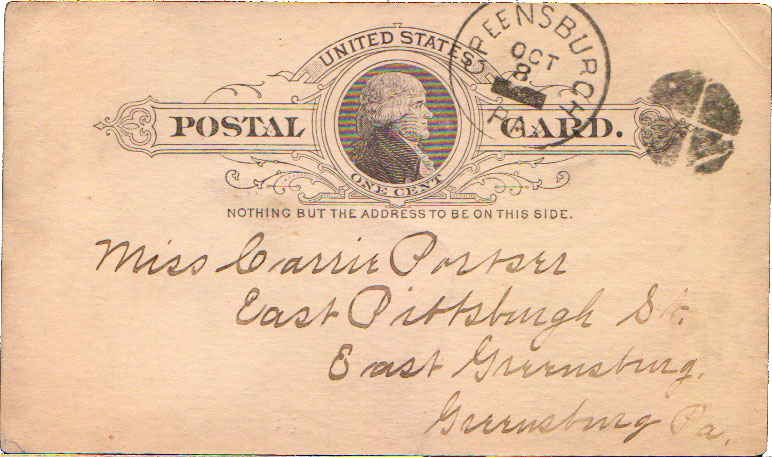 UNITED STATES
POSTAL CARD.
ONE CENT
NOTHING BUT THE ADDRESS TO BE ON THIS SIDE.
REENSBURGH
OCT
8
PA.
Miss Carrie Portser
East Pittsburgh St.
East Greensburg.
Greensburg Pa.